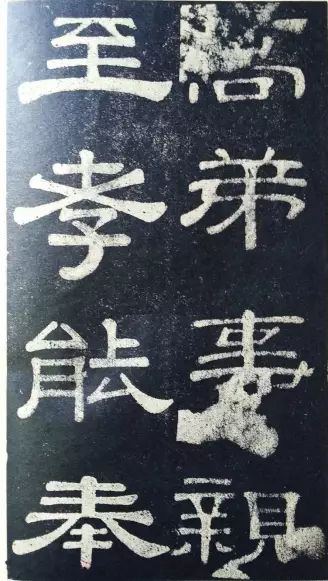 弟事親
至孝能奉